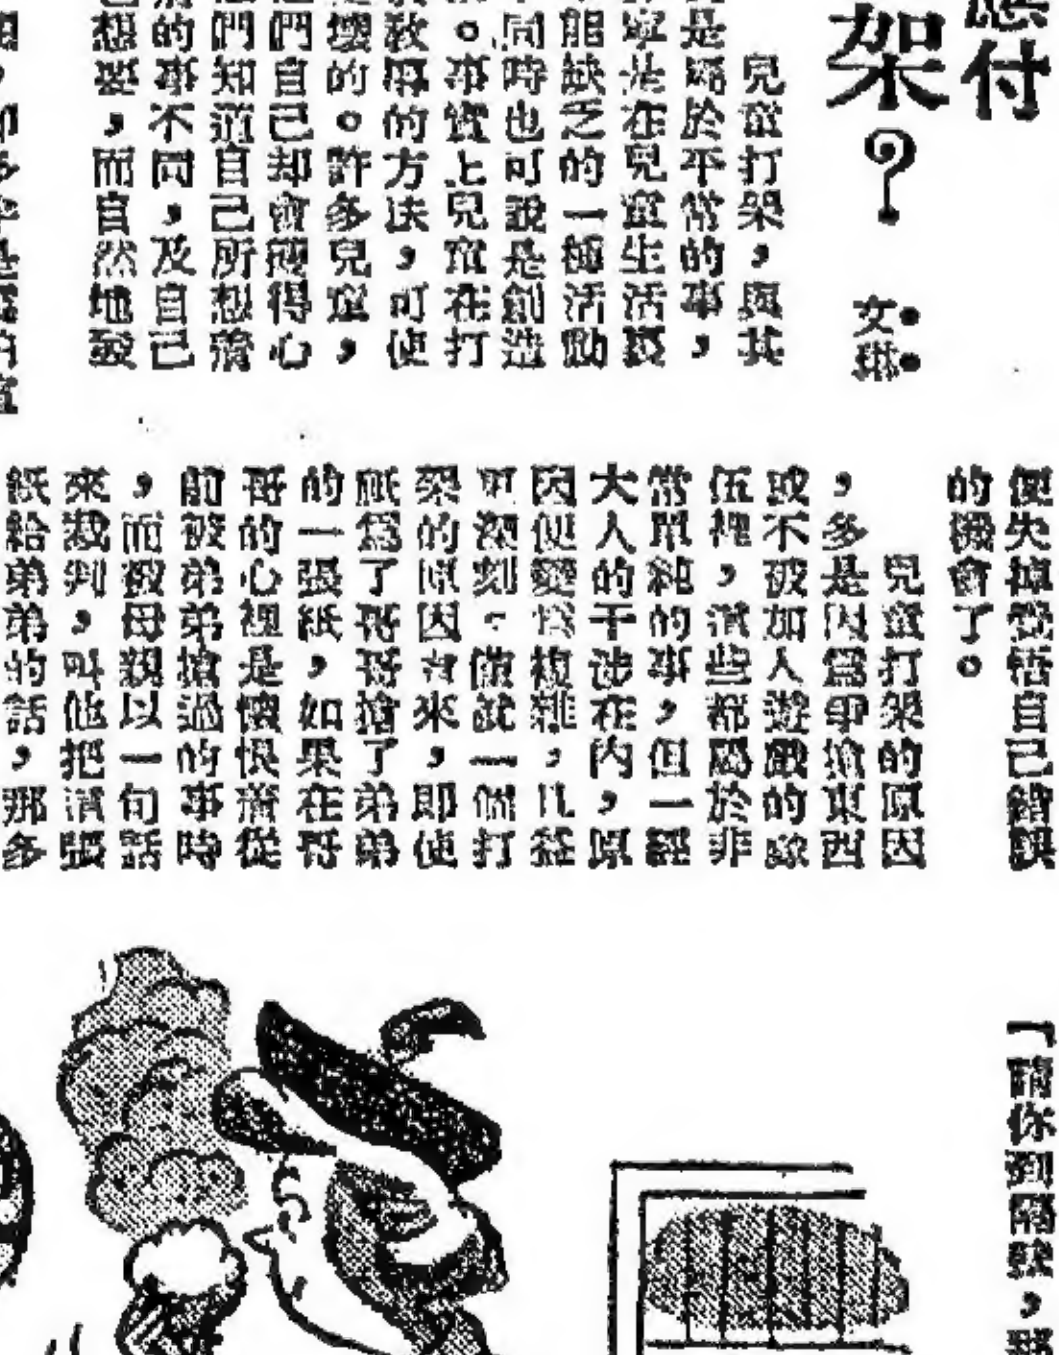 應付
架？
文琳
兒童打架，與其
是屬於平常的事，
寧是在兒童生活裏
能缺乏的一種活動
同時也可說是創造
。事實上兒童在打
教導的方法，可使
壞的。許多兒童，
們自己却會獲得心
們知道自己所想着
的事不同，及自己
想要，而自然地發
便失掉覺悟自己錯誤
的機會了。
兒童打架的原因
，多是因爲爭搶東西
或不被加入遊戲的隊
伍裡，這些都屬於非
常單純的事，但一經
大人的干涉在內，原
因便變爲複雜，且益
更深刻。僅說一個打
架的原因來，即使
祇爲了哥哥搶了弟弟
的一張紙，如果在哥
哥的心裡是懷恨着從
前被弟弟搶過的事時
，而被母親以一句話
來裁判，叫他把這張
紙給弟弟的話，那多
「請你到隔